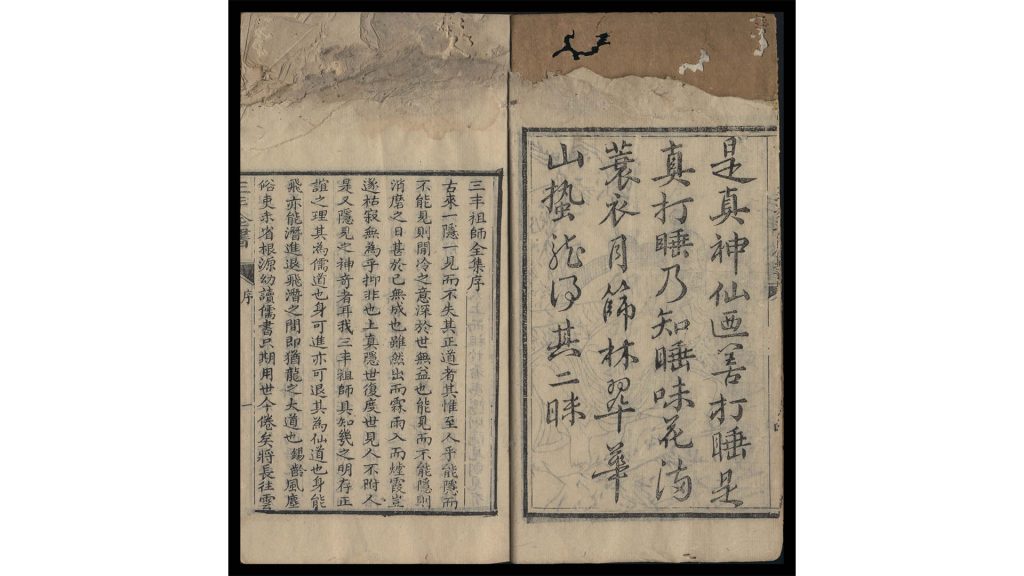 是真神仙迺善打睡是
真打睡乃知睡味花滿
蓑衣月篩林翠華
山蟄龍得其三昧
三丰祖師全集序
古來一隱一見而不失其正道者其惟至人乎能隱而
不能見則閒冷之意深於世無益也能見而不能隱則
消磨之日甚於已無成也雖然出而霖雨入而煙霞豈
遂枯寂無為乎抑非也上真隱世復度世見人不附人
是又隱見之神奇者耳我三丰祖師具知幾之明存正
誼之理其為儒道也身可進亦可退其為仙道也身能
飛亦能潛進退飛潛之間即猶龍之大道也錫齡風塵
俗吏未省根源幼讀儒書只期用世今倦矣將長往雲
三丰全書 序 一